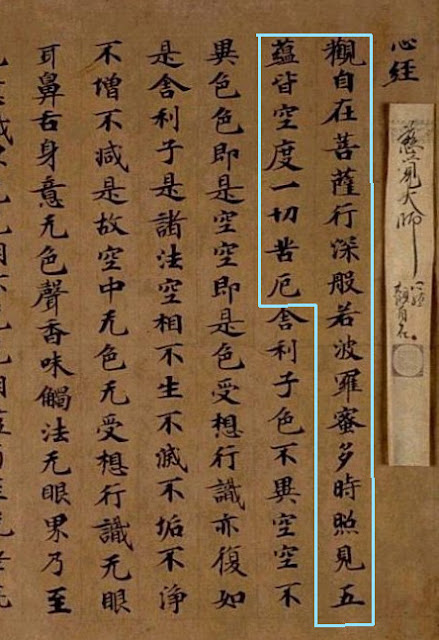 慈覺大師
心經
觀自在菩薩行深般若波羅蜜多時照見五
蘊皆空度一切苦厄舍利子色不異空空不
異色色即是空空即是色受想行識亦復如
是舍利子是諸法空相不生不滅不垢不淨
不增不减是故空中无色无受想行識无眼
耳鼻舌身意无色聲香味觸法无眼界乃至